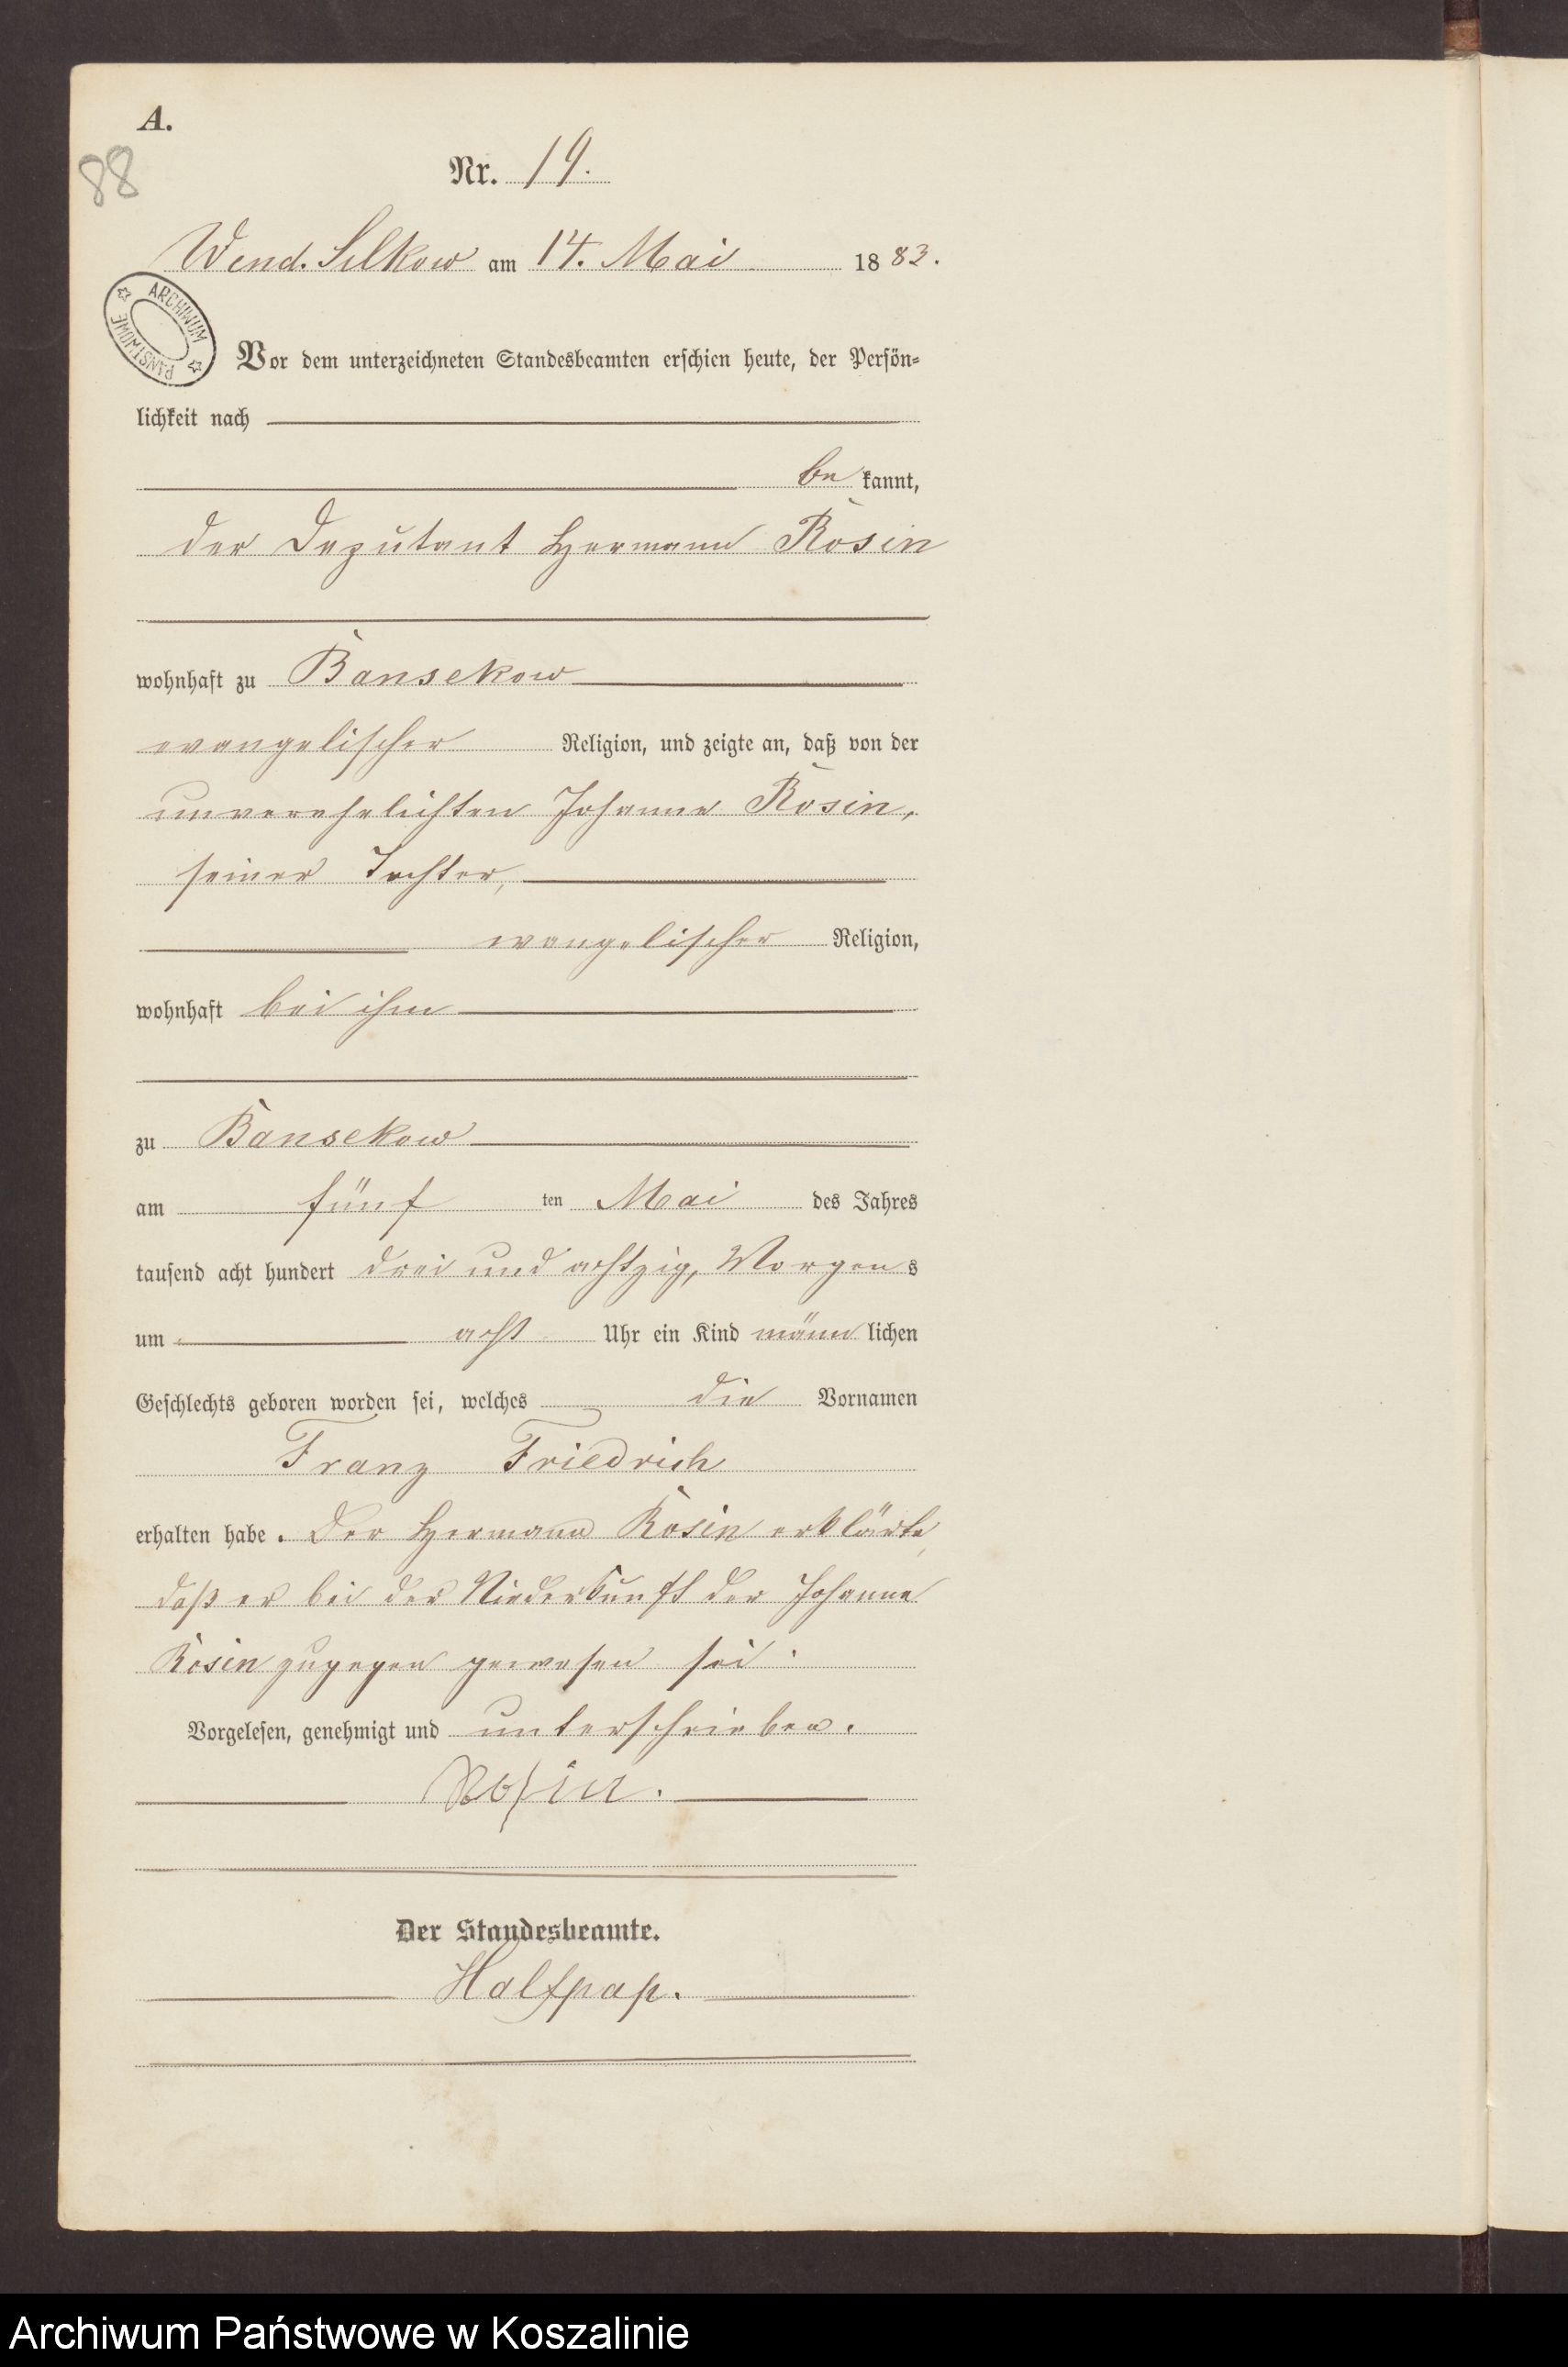 A.
88
Nr. 19.
Wend. Silkow am 14. Mai 1883.
ARCHIWUM PAŃSTWOWE
Vor dem unterzeichneten Standesbeamten erschien heute, der Persön=
lichkeit nach
be kannt,
der Deputant Hermann Rosin
wohnhaft zu Bansekow
evangelischer Religion, und zeigte an, daß von der
unverehelichten Johanne Rosin,
seiner Tochter,
evangelischer Religion,
wohnhaft bei ihm
zu Bansekow
am fünf ten Mai des Jahres
tausend acht hundert drei und achtzig, Morgens
um acht Uhr ein Kind männ lichen
Geschlechts geboren worden sei, welches die Vornamen
Franz Friedrich
erhalten habe. Der Hermann Rosin erklärte,
daß er bei der Niederkunft der Johanne
Rosin zugegen gewesen sei.
Vorgelesen, genehmigt und unterschrieben.
Rosin.
Der Standesbeamte.
Halfpap.
Archiwum Państwowe w Koszalinie